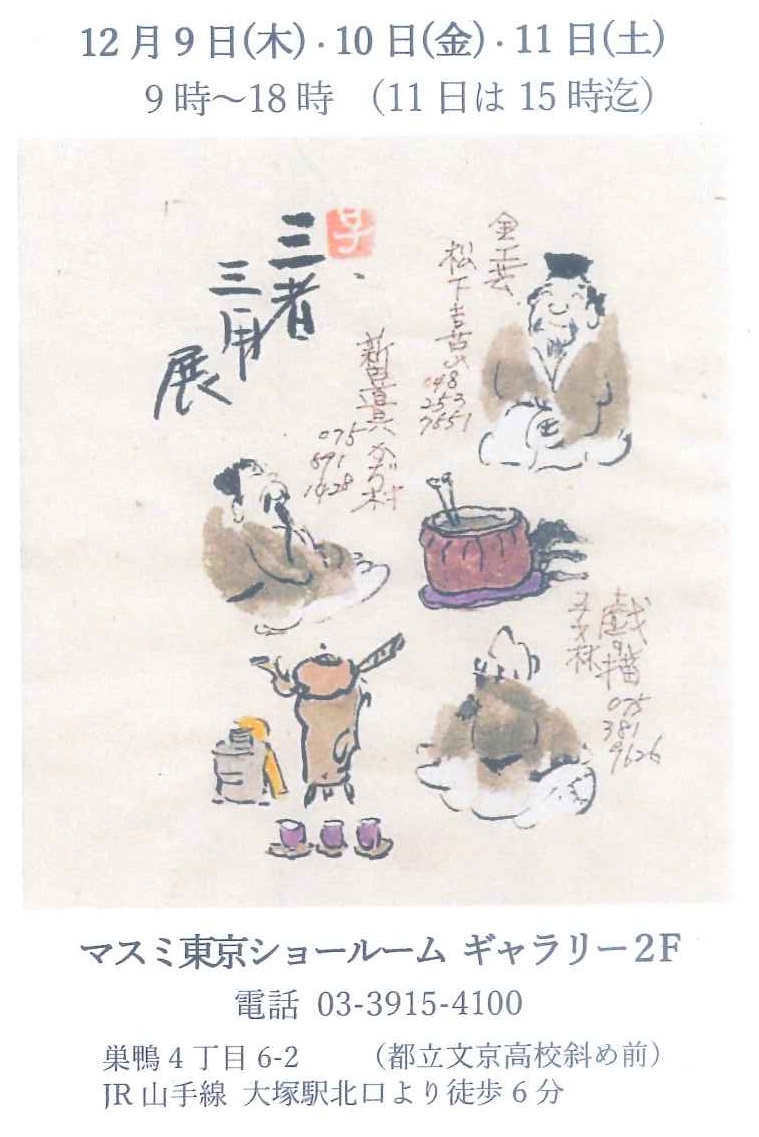 12月9日(木)・10日(金)・11日(土)
9時～18時 （11日は15時迄）
三者
三用
展
金工芸
松下
048
253
7651
075
691
1428
戯描
075
381
9626
マスミ東京ショールーム ギャラリー2F
電話 03-3915-4100
巣鴨4丁目6-2 （都立文京高校斜め前）
JR山手線 大塚駅北口より徒歩6分